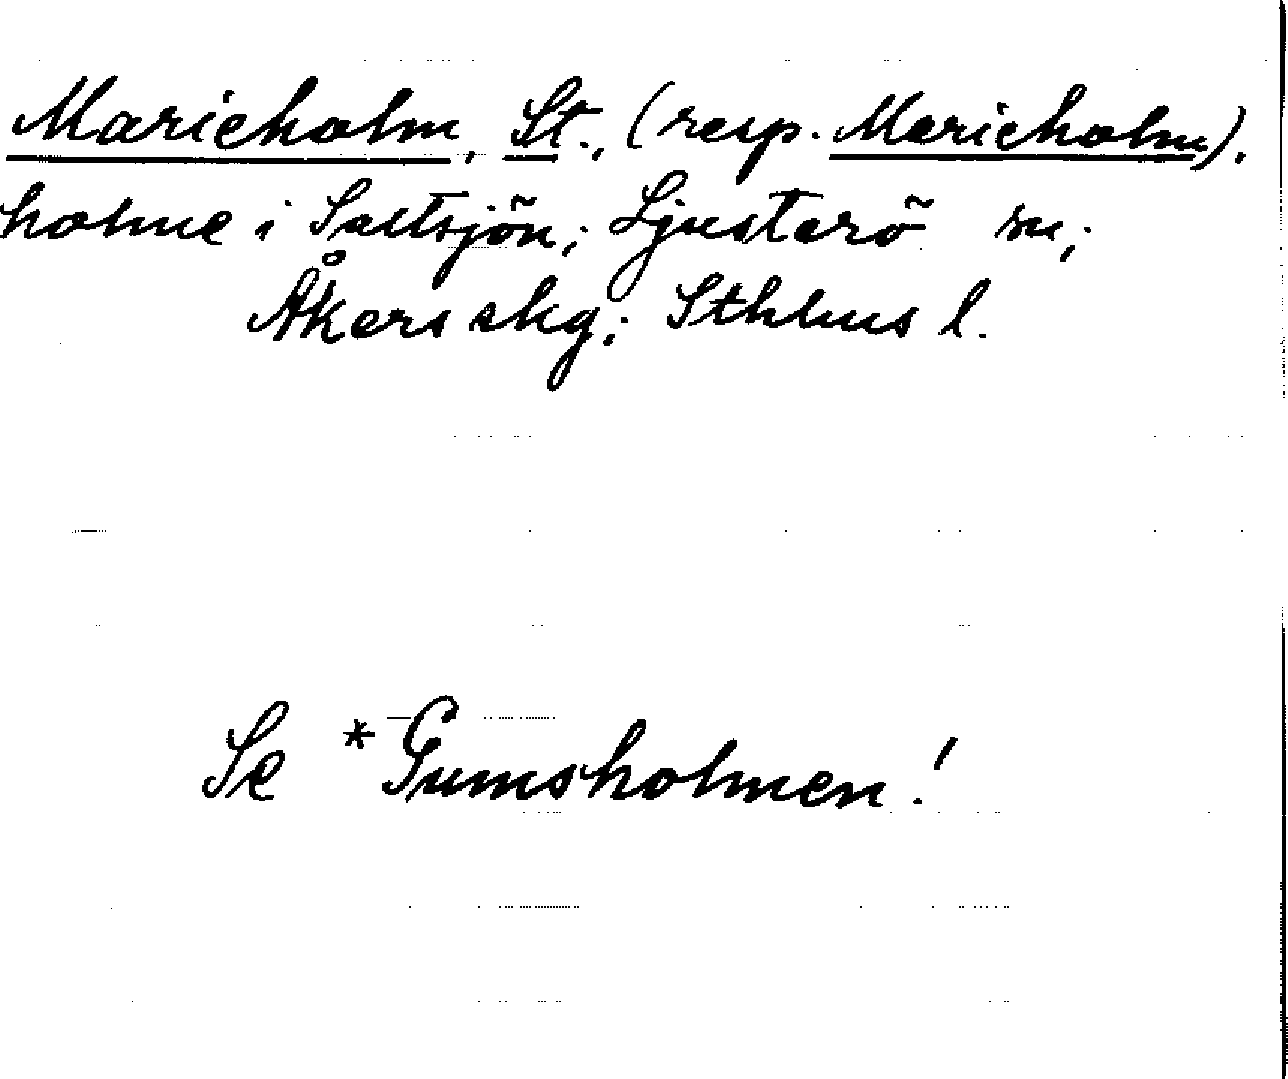 Marieholm, St., (resp. Marieholm).
holme i Saltsjön; Ljusterö sn;
Åkers skg; Sthlms l.
Se *Gumsholmen!